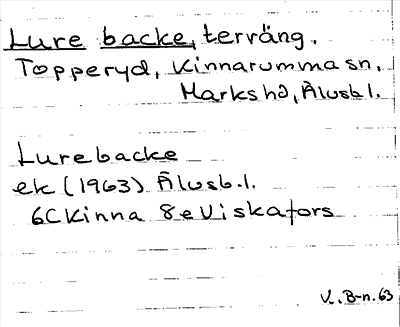 Lure backe, terräng.
Topperyd, Kinnarumma sn,
Marks hd, Älvsb l.
Lurebacke
ek (1963) Älvsb. l.
6C Kinna 8e Viskafors
V. B-n. 63